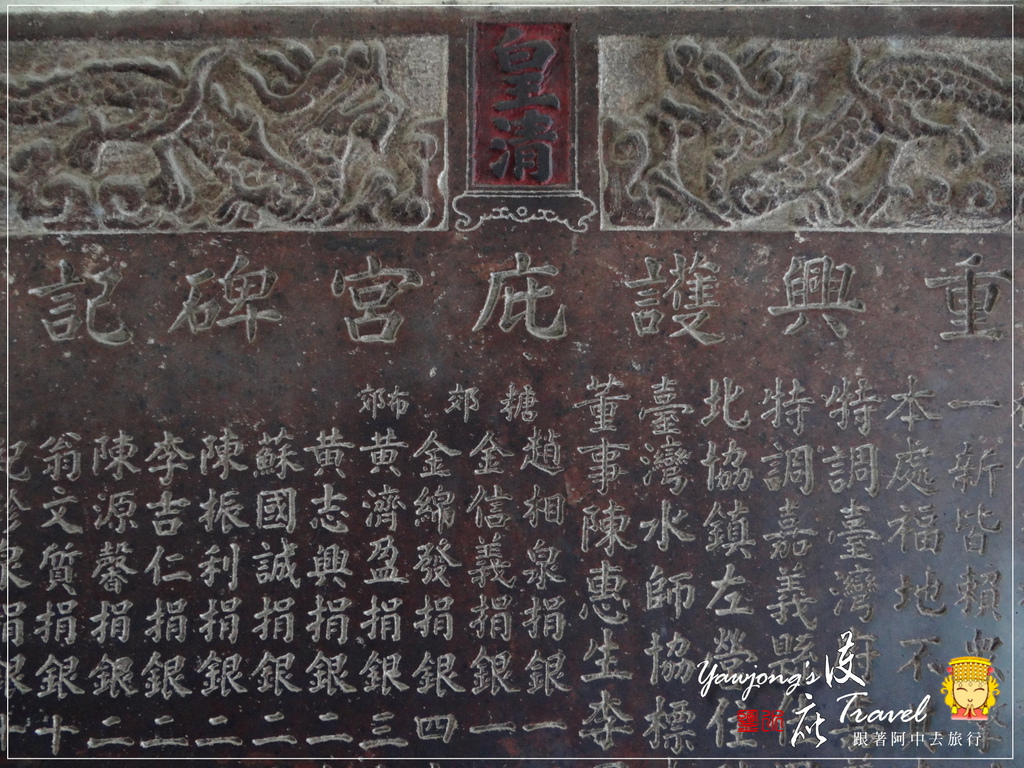 皇清
重興護庇宮碑記
一新皆賴
本處福地不
特調臺灣府
特調嘉義縣
北協鎮左營任
臺灣水師協標
董事陳惠生李
糖郊
趙相泉捐銀一
金信義捐銀一
金綿發捐銀四
布郊
黃濟盈捐銀三
黃志興捐銀二
蘇國誠捐銀二
陳振利捐銀二
李吉仁捐銀二
陳源馨捐銀二
翁文質捐銀十
捐銀十
Yawjong's
Travel
跟著阿中去旅行